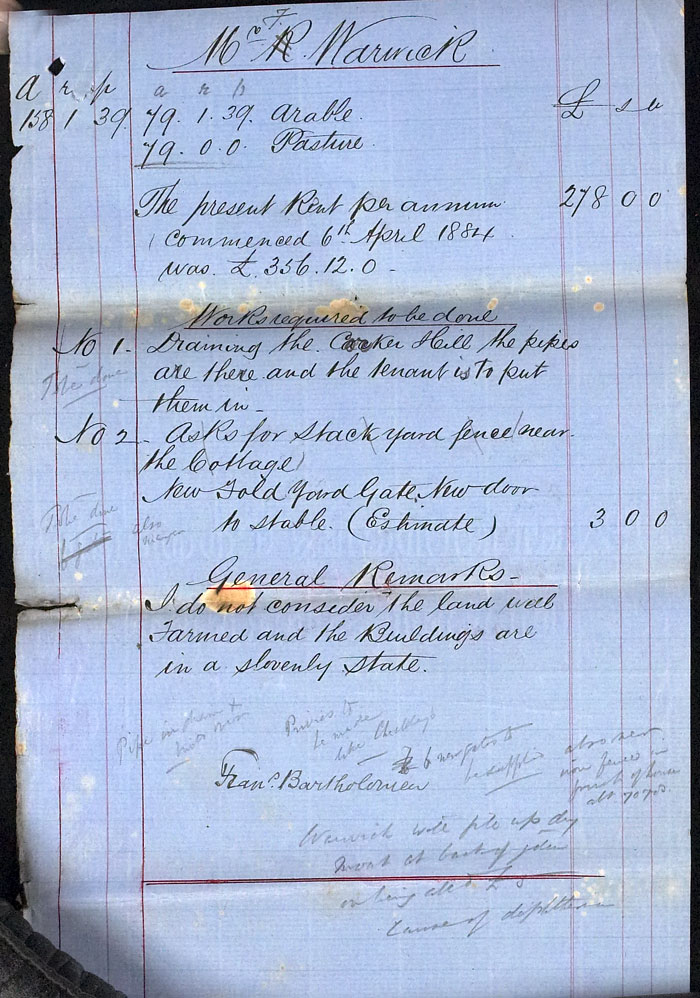 Mr F. Warwick
a r p a r p £ s d
158 1 39 79. 1. 39. Arable.
79. 0. 0. Pasture
The present Rent per annum 278 0 0
commenced 6th April 1884
was £. 356. 12. 0 -
Works required to be done
No 1 - Draining the Corker Hill the pipes
are there and the tenant is to put
them in -
To be done
No 2 - Asks for Stack yard fence near
the Cottage
New Fold Yard Gate, New door
to Stable. (Estimate) 3 0 0
To be done
also
General Remarks -
I do not consider the land well
Farmed and the Buildings are
in a slovenly State.
Pipe in
Privies to
be made
like
6 new gates to
be supplied
also new
iron fence in
front of house
abt 70 yds.
Frans. Bartholomew
Warwick will fill up dry
moat at back of
on being £5
Cause of diphtheria